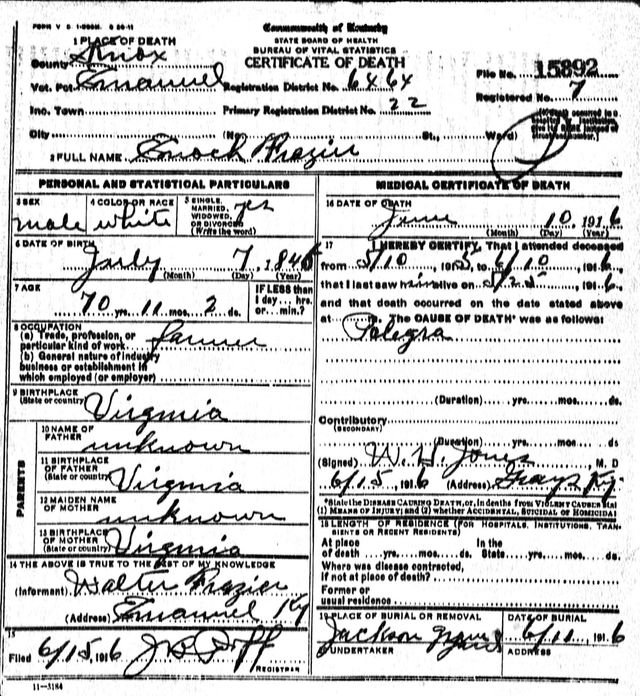 FORM V. S. 1-
Commonwealth of Kentucky
STATE BOARD OF HEALTH
BUREAU OF VITAL STATISTICS
CERTIFICATE OF DEATH
1 PLACE OF DEATH
County Knox
Vot. Pct Emanuel
Inc. Town
City (No. St., Ward)
Registration District No. 6464
Primary Registration District No. 22
File No. 15892
Registered No. 7
2 FULL NAME Enoch Frazier
PERSONAL AND STATISTICAL PARTICULARS
3 SEX male
4 COLOR OR RACE white
5 SINGLE, MARRIED, WIDOWED, OR DIVORCED (Write the word) yes
6 DATE OF BIRTH
July 7, 184
(Month) (Day) (Year)
7 AGE
70 yrs. 11 mos. 2 ds.
IF LESS than 1 day... hrs. or... min.?
8 OCCUPATION
(a) Trade, profession, or particular kind of work farmer
(b) General nature of industry business or establishment in which employed (or employer)
9 BIRTHPLACE (State or country) Virginia
PARENTS
10 NAME OF FATHER unknown
11 BIRTHPLACE OF FATHER (State or country) Virginia
12 MAIDEN NAME OF MOTHER unknown
13 BIRTHPLACE OF MOTHER (State or country) Virginia
14 THE ABOVE IS TRUE TO THE BEST OF MY KNOWLEDGE
(Informant) Walter Frazier
(Address) Emanuel Ky
15
Filed 6/15, 1916
REGISTRAR
11-3184
MEDICAL CERTIFICATE OF DEATH
16 DATE OF DEATH
June 10, 1916
(Month) (Day) (Year)
17 I HEREBY CERTIFY, That I attended deceased
from 5/10 191 to 6/10 1916,
that I last saw him alive on 5/25 1916,
and that death occurred on the date stated above
at m. The CAUSE OF DEATH* was as follows:
Pelegra
(Duration) yrs. mos. ds.
Contributory
(SECONDARY)
(Duration) yrs. mos. ds
(Signed) W. H. Jones, M. D
6/15 1916 (Address) Grays Ky.
*State the DISEASE CAUSING DEATH, or, in deaths from VIOLENT CAUSES stat
(1) MEANS OF INJURY; and (2) whether ACCIDENTAL, SUICIDAL OR HOMICIDAL
18 LENGTH OF RESIDENCE (FOR HOSPITALS, INSTITUTIONS, TRANSIENTS OR RECENT RESIDENTS)
At place of death yrs. mos. ds. In the State yrs. mos. ds.
Where was disease contracted,
If not at place of death?
Former or
usual residence
19 PLACE OF BURIAL OR REMOVAL
Jackson Grave Yard
DATE OF BURIAL
6/11 1916
UNDERTAKER
ADDRESS